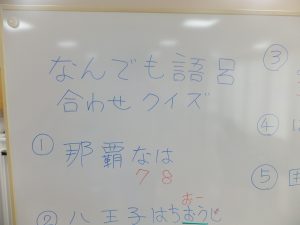 なんでも語呂
合わせクイズ
① 那覇なは
78
② 八王子はちおうじ
おー
③
④
⑤